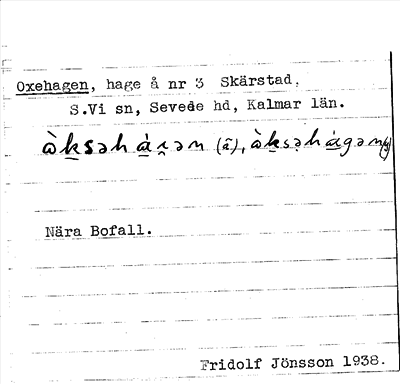 Oxehagen, hage å nr 3 Skärstad,
S.Vi sn, Sevede hd, Kalmar län.
Nära Bofall.
Fridolf Jönsson 1938.